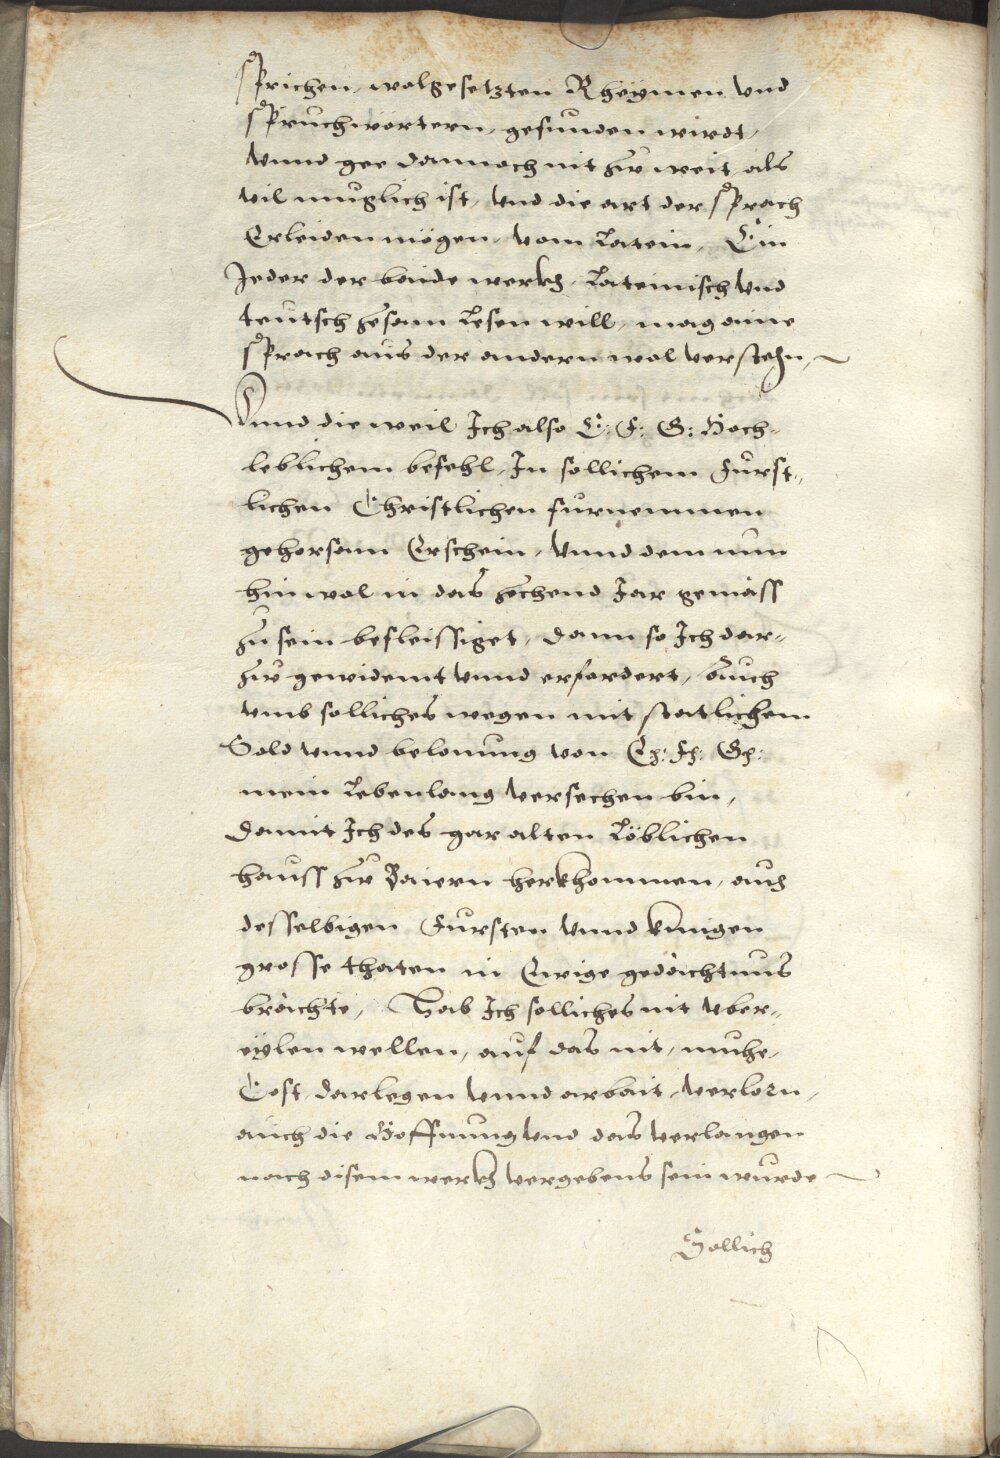 sprichen, wolgesetzten Rheymen und
spruchwortern, gefunden wirdt,
Vnnd gee dannoch nit zu weit, als
vil muglich ist, vnd die art der sprach
Erleiden mögen, vom Latein, Ein
Jeder der baide werkh, Lateinisch vnd
teutsch zesam lesen will, mag aine
sprach aus der andern wol verstehn,
Vnnd die weil Ich also E: F: G: Hoch-
leblichem befehl, In sollichem Fürst-
lichen Christlichen furnemmen
gehorsam Erschein, Vnnd dem nun
hin wol in das zechend Jar gemäss
zu sein befleissiget, dann so Ich dar-
zu gewidemt vnnd erfordert, Auch
vmb solliches wegen mit statlichem
Sold vnnd belonung von E: F: G:
mein Lebenlang versechen bin,
Damit Ich des gar alten Löblichen
hauss zu Baiern herkhommen, auch
desselbigen Fursten vnnd künigen
grosse thaten in Ewige gedächtnus
brächte, Hab Ich solliches nit vber-
eÿlen wellen, auf das nit, muhe,
Cost, darlegen vnnd arbait, verlorn,
auch die Hoffnung vnd das verlangen
nach disem werkh vergebens sein wurde
Sollich